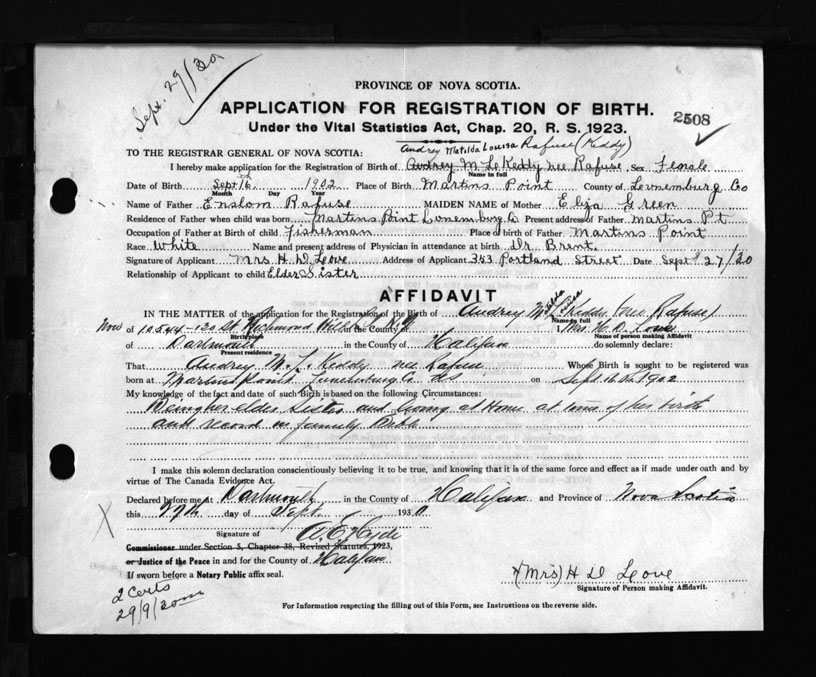 Sept. 29/30
PROVINCE OF NOVA SCOTIA.
APPLICATION FOR REGISTRATION OF BIRTH.
2508
Under the Vital Statistics Act, Chap. 20, R. S. 1923.
Audrey Matilda Louisa Rafuse (Keddy)
TO THE REGISTRAR GENERAL OF NOVA SCOTIA:
I hereby make application for the Registration of Birth of Audrey M L Keddy nee Rafuse, Sex Female
Name in full
Date of Birth Sept 16 1902 Place of Birth Martins Point County of Lunemburg Co
Month Day Year
Name of Father Enslom Rafuse MAIDEN NAME of Mother Eliza Green
Residence of Father when child was born Martins Point Lunemburg Co Present address of Father Martins Pt
Occupation of Father at Birth of child Fisherman Place of birth of Father Martins Point
Race White Name and present address of Physician in attendance at birth Dr Brent.
Signature of Applicant Mrs H D Love Address of Applicant 343 Portland Street Date Sept 27/30
Relationship of Applicant to child Elder Sister
AFFIDAVIT
IN THE MATTER of the application for the Registration of the Birth of Audrey M. L. Keddy (nee Rafuse)
Name in full
Now of 10544-120 St. Richmond Hill in the County of I, Mrs. H. D. Love
Birthplace Name of person making Affidavit
of Dartmouth in the County of Halifax do solemnly declare:
Present residence
That Audrey M. L. Keddy nee Rafuse Whose Birth is sought to be registered was
born at Martins Point Lunenburg Co NS on Sept. 16th 1902
My knowledge of the fact and date of such Birth is based on the following Circumstances:
Being her elder Sister and living at Home at time of her birth
and record in family Bible
I make this solemn declaration conscientiously believing it to be true, and knowing that it is of the same force and effect as if made under oath and by
virtue of The Canada Evidence Act.
Declared before me at Dartmouth in the County of Halifax and Province of Nova Scotia
this 27th day of Sept. 1930
Signature of A. E. Hyde
Commissioner under Section 5, Chapter 38, Revised Statutes, 1923,
or Justice of the Peace in and for the County of Halifax
If sworn before a Notary Public affix seal.
(Mrs) H D Love
Signature of Person making Affidavit.
2 Certs
29/9/30
For Information respecting the filling out of this Form, see Instructions on the reverse side.